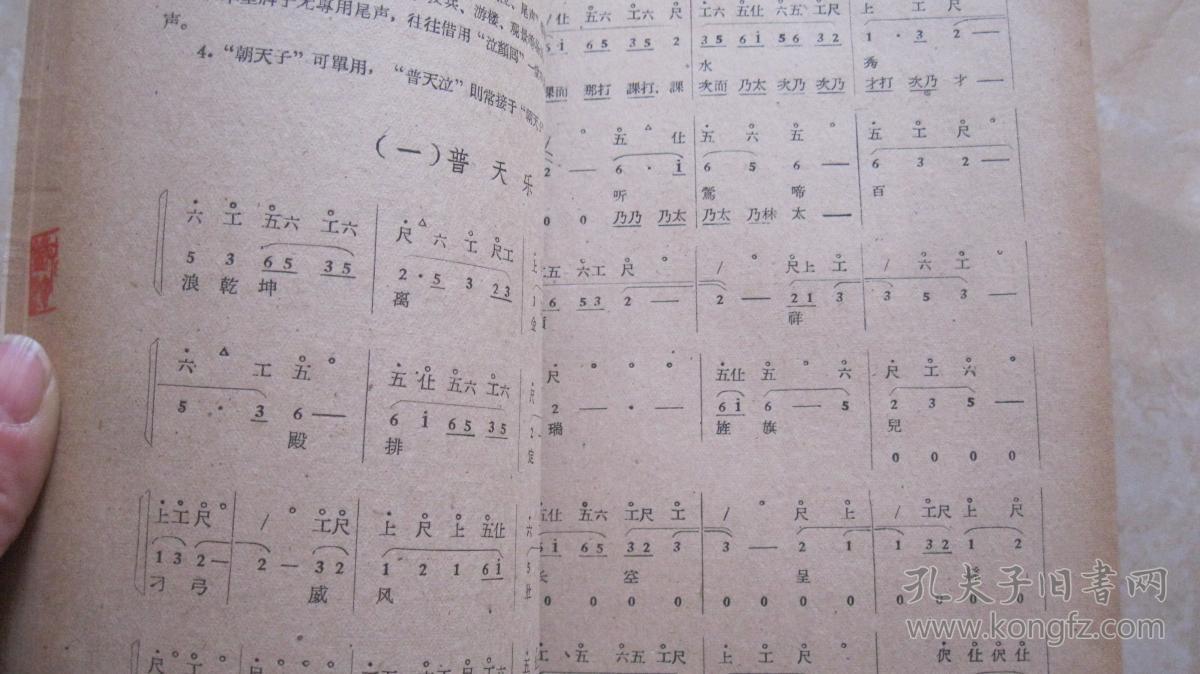 游樓、
往往借用“泣顏囘”一
声。
4.“朝天子”可單用，“普天泣”則常接于“朝天
(一)普天乐
六 工 五六 工六 尺 六 工 尺工
5 3 65 35 2·5 3 23
浪 乾 坤 离
六 工 五 五 仕 五六 工六
5 · 3 6 — 6 i 65 35
殿 排
上工 尺 / 工尺 上 尺 上 五仕
13 2— 2— 32 1 2 1 6i
刁 弓 威 风
/仕 五六 工六 尺 工六 五仕 六五 工尺 上 工 尺
6i 65 35 2 35 6i 56 32 1· 3 2 —
水 秀
課而 那打 課打. 課 次而 乃太 次乃 次乃 才打 次乃 才 —
五 仕 五 六 五 五 工 尺
2 — 6 · i 6 5 6 — 6 3 2 —
听 鶯 啼 百
0 0 乃乃 乃太 乃太 乃林 太 —
五 六工 尺 / 尺上 工 / 六 工
6 53 2 — 2 — 21 3 3 5 3 —
祥
尺 五仕 五 六 尺 工 六
2 — · — 6i 6 — 5 2 3 5 —
瑞 旌 旗 兒
0 0 0 0
五仕 五六 工尺 工 / 尺 上 / 工尺 上 尺
6i 65 32 3 3 — 2 1 1 32 1 2
长 空 呈
0 0 0 0 0 0 0 0 0 0 0 0
工 五 六五 工尺 上 工 尺 伬仕伬仕
孔夫子旧書网
www.kongfz.com